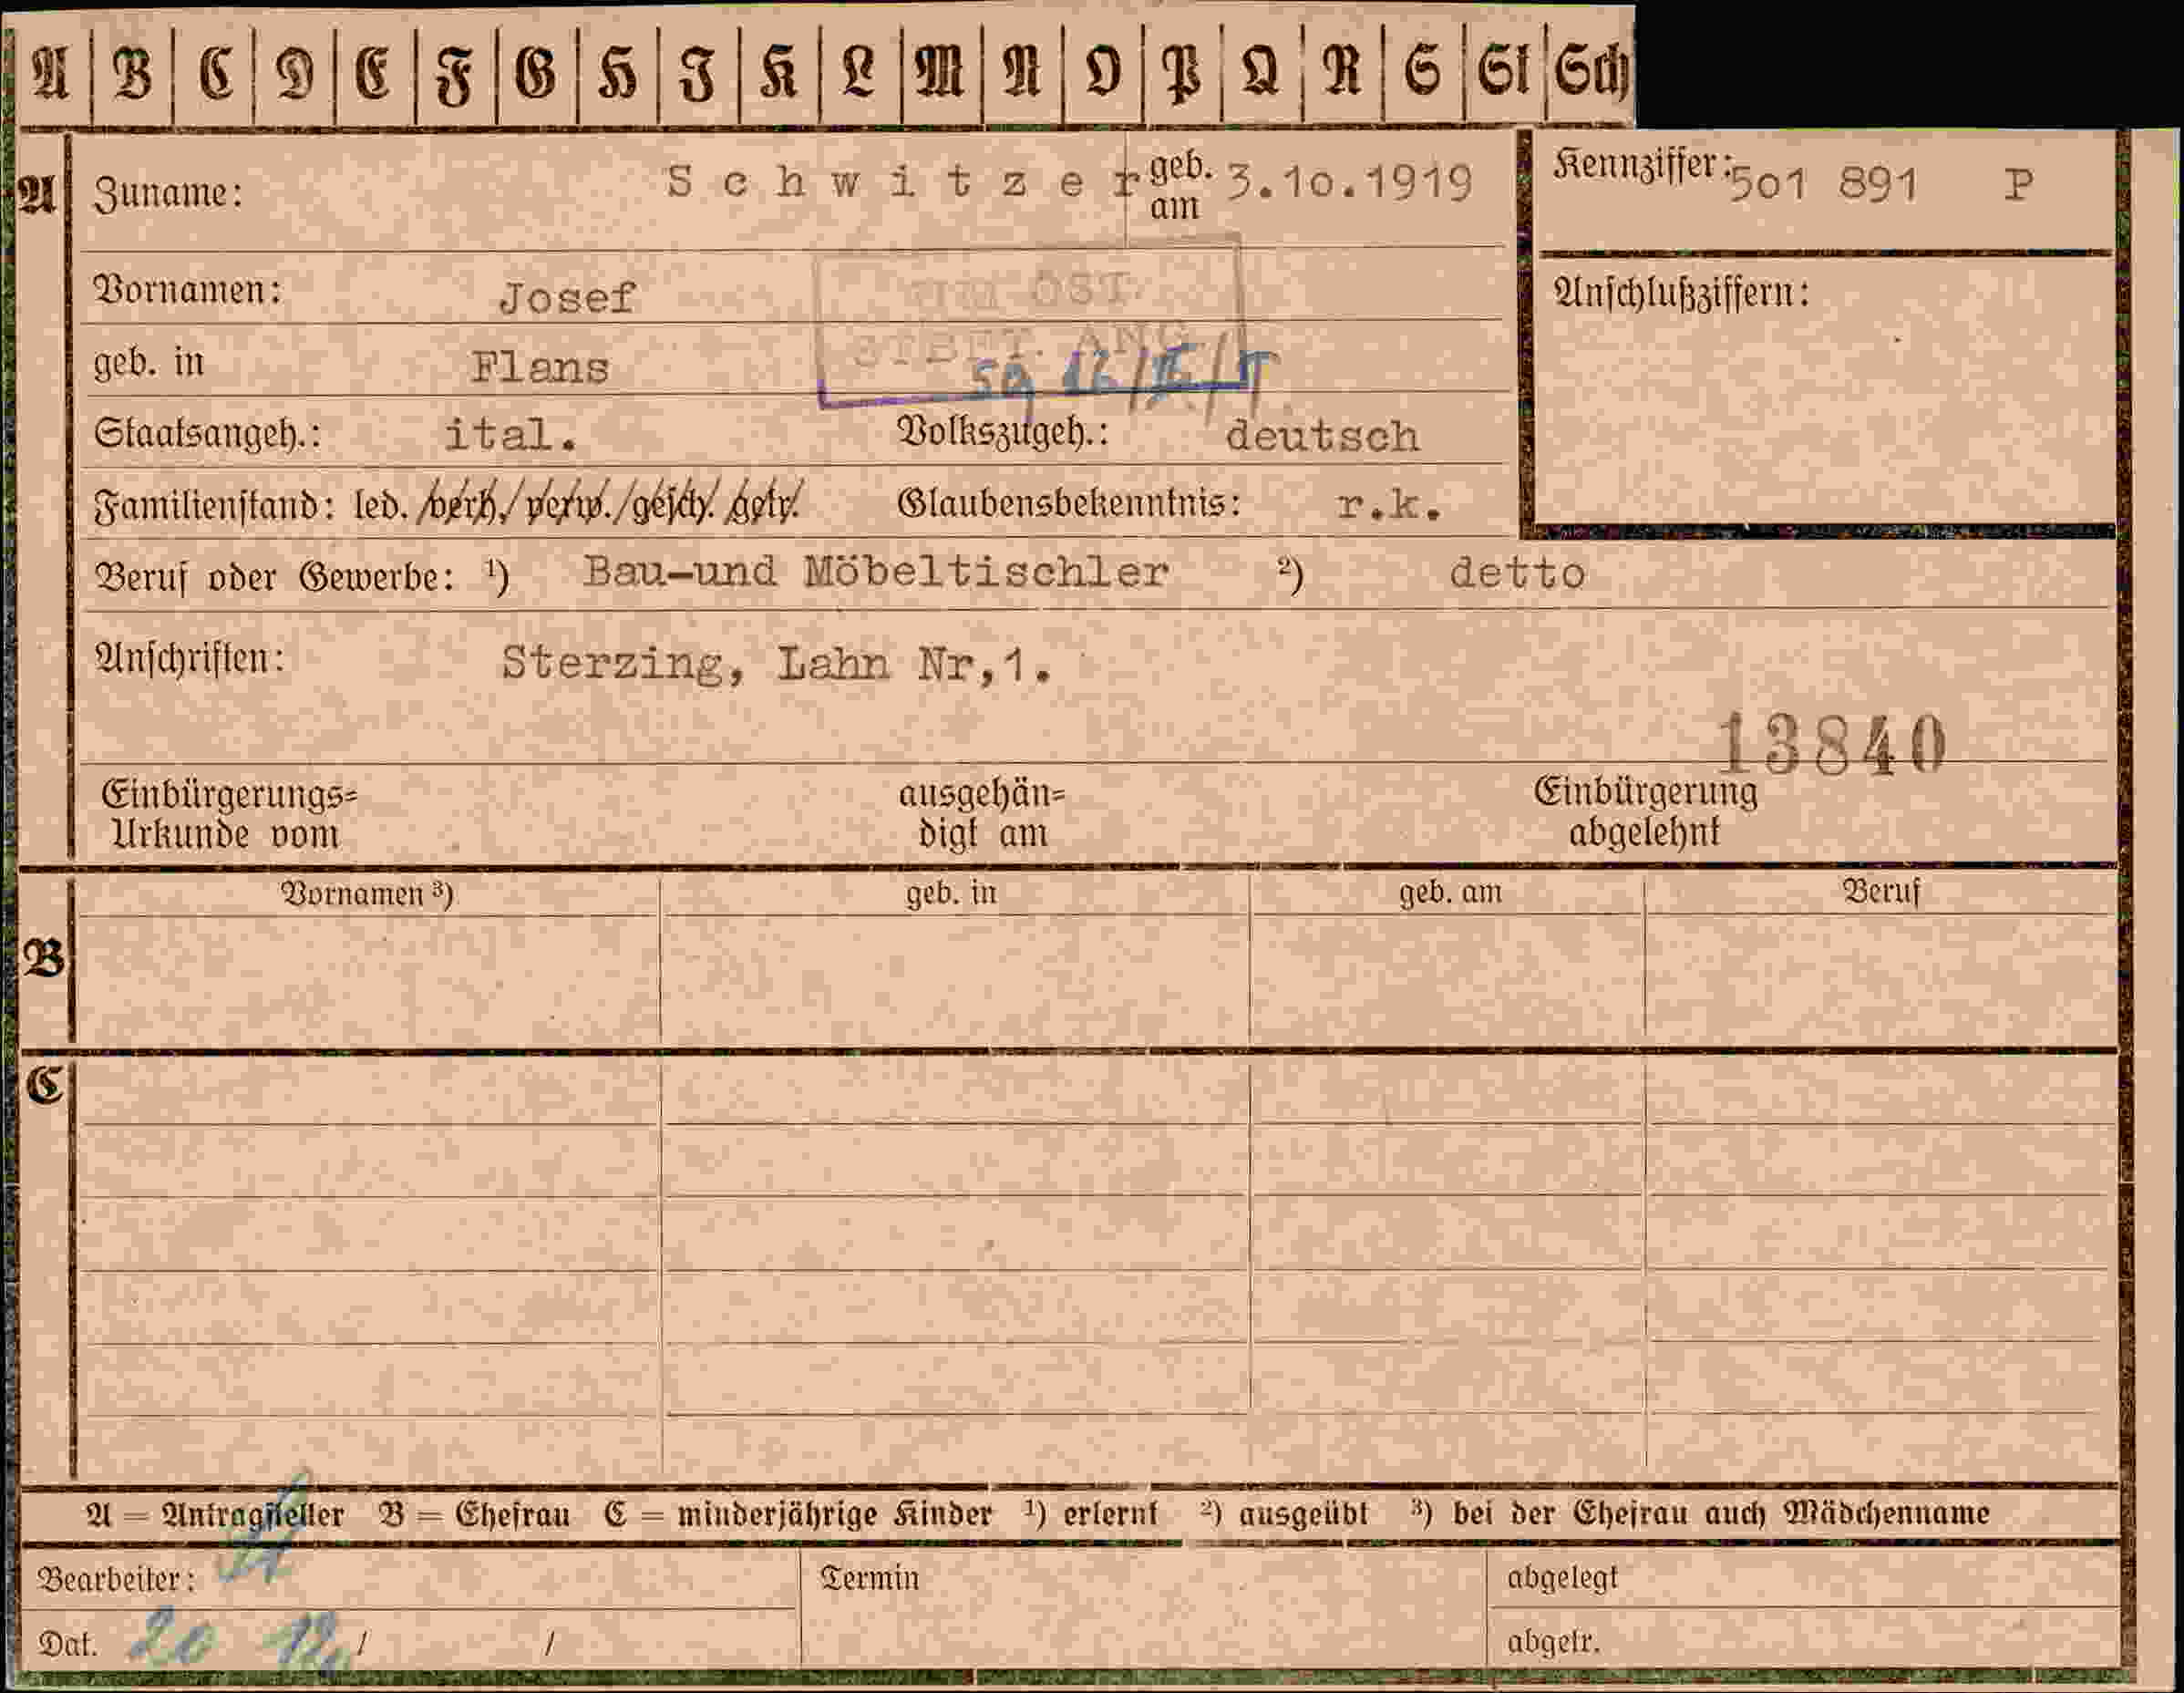 A B C D E F G H I K L M N O P Q R S St Sch
A Zuname: Schwitzer geb. am 3.10.1919 Kennziffer: 501 891 P
Vornamen: Josef Anschlußziffern:
UM OST.
geb. in Flans
Staatsangeh.: ital. Volkszugeh.: deutsch
Familienstand: led. /verh./ verw./gesch. getr. Glaubensbekenntnis: r.k.
Beruf oder Gewerbe: ¹) Bau-und Möbeltischler ²) detto
Anschriften: Sterzing, Lahn Nr,1.
13840
Einbürgerungs= ausgehän= Einbürgerung
Urkunde vom digt am abgelehnt
Vornamen ³) geb. in geb. am Beruf
B
C
A = Antragsteller B = Ehefrau C = minderjährige Kinder ¹) erlernt ²) ausgeübt ³) bei der Ehefrau auch Mädchenname
Bearbeiter: Termin abgelegt
Dat. 20 12 / / abgetr.